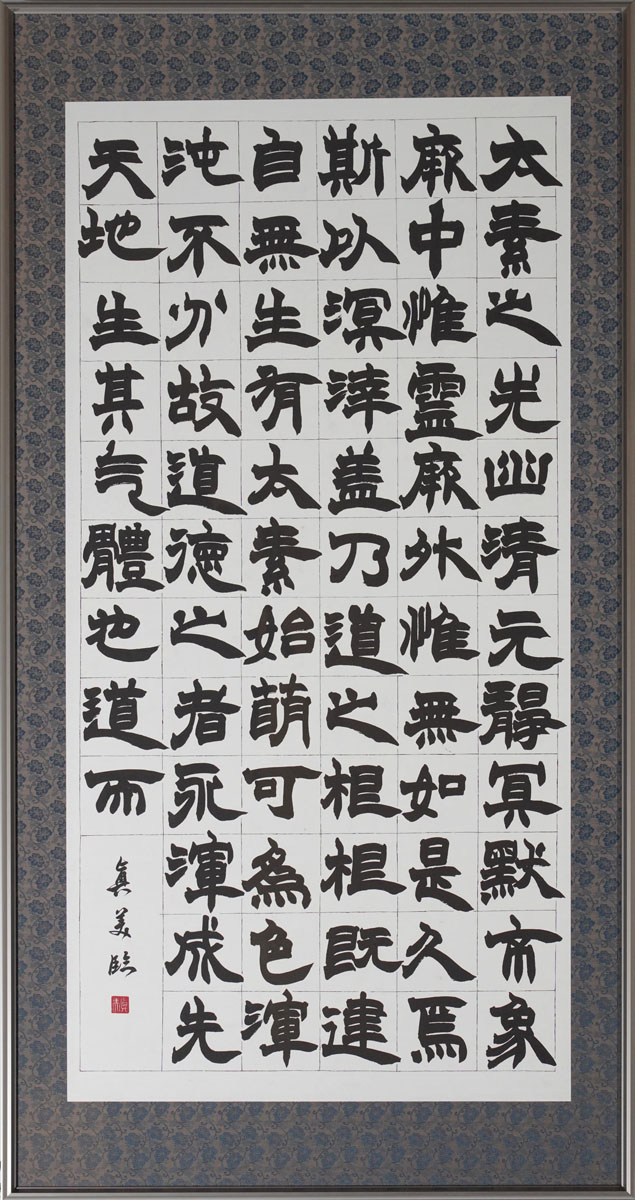 太素之先幽清元靜冥默不象
厥中惟霊厥外惟無如是久焉
斯以溟涬盖乃道之根根既建
自無生有太素始萌可為色渾
沌不分故道德之者永渾成先
天地生其气體也道而
真美臨